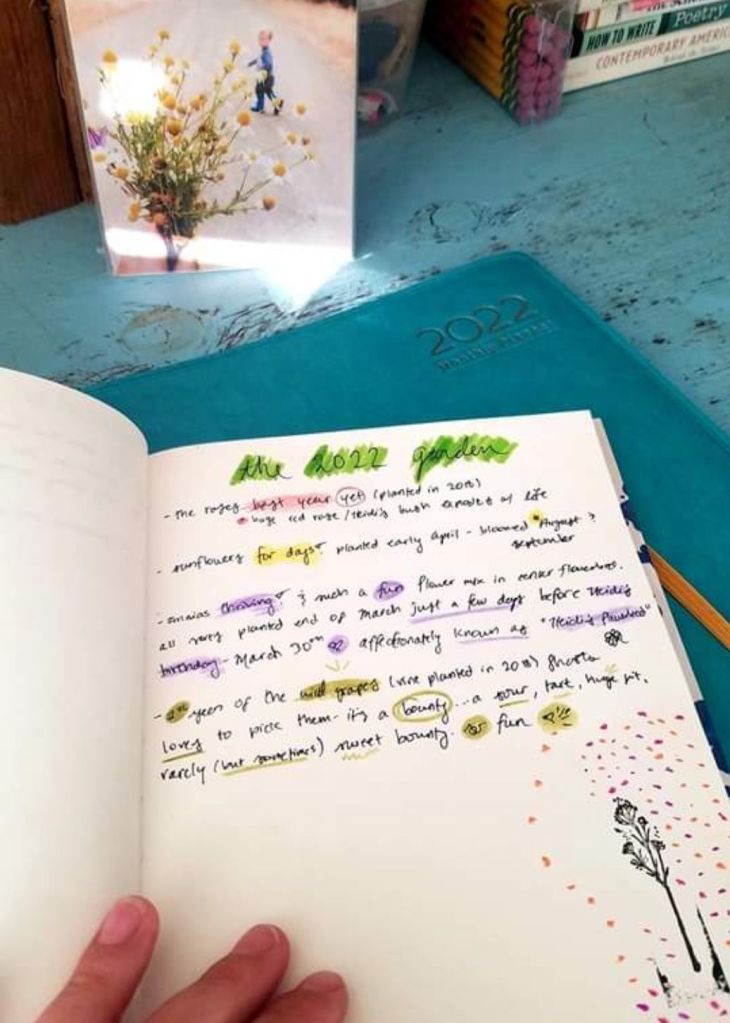 HOW TO WRITE Poetry
CONTEMPORARY AMERIC
2022
Monthly Planner
the 2022 garden
- the roses best year yet (planted in 2018)
huge red rose / Heidi's bush aposts of life
- sunflowers for days! planted early April - bloomed August ?
September
- zinnias thriving! & such a fun flower mix in center flowerbed.
all were planted end of March just a few days before Heidi's
birthday - March 30th affectionately known as "Heidi's Flowerbed"
- 2nd year of the wild grapes (vine planted in 2018)
loves to pick them - it's a bounty... a sour, tart, huge pit,
rarely (but sometimes) sweet bounty. So fun